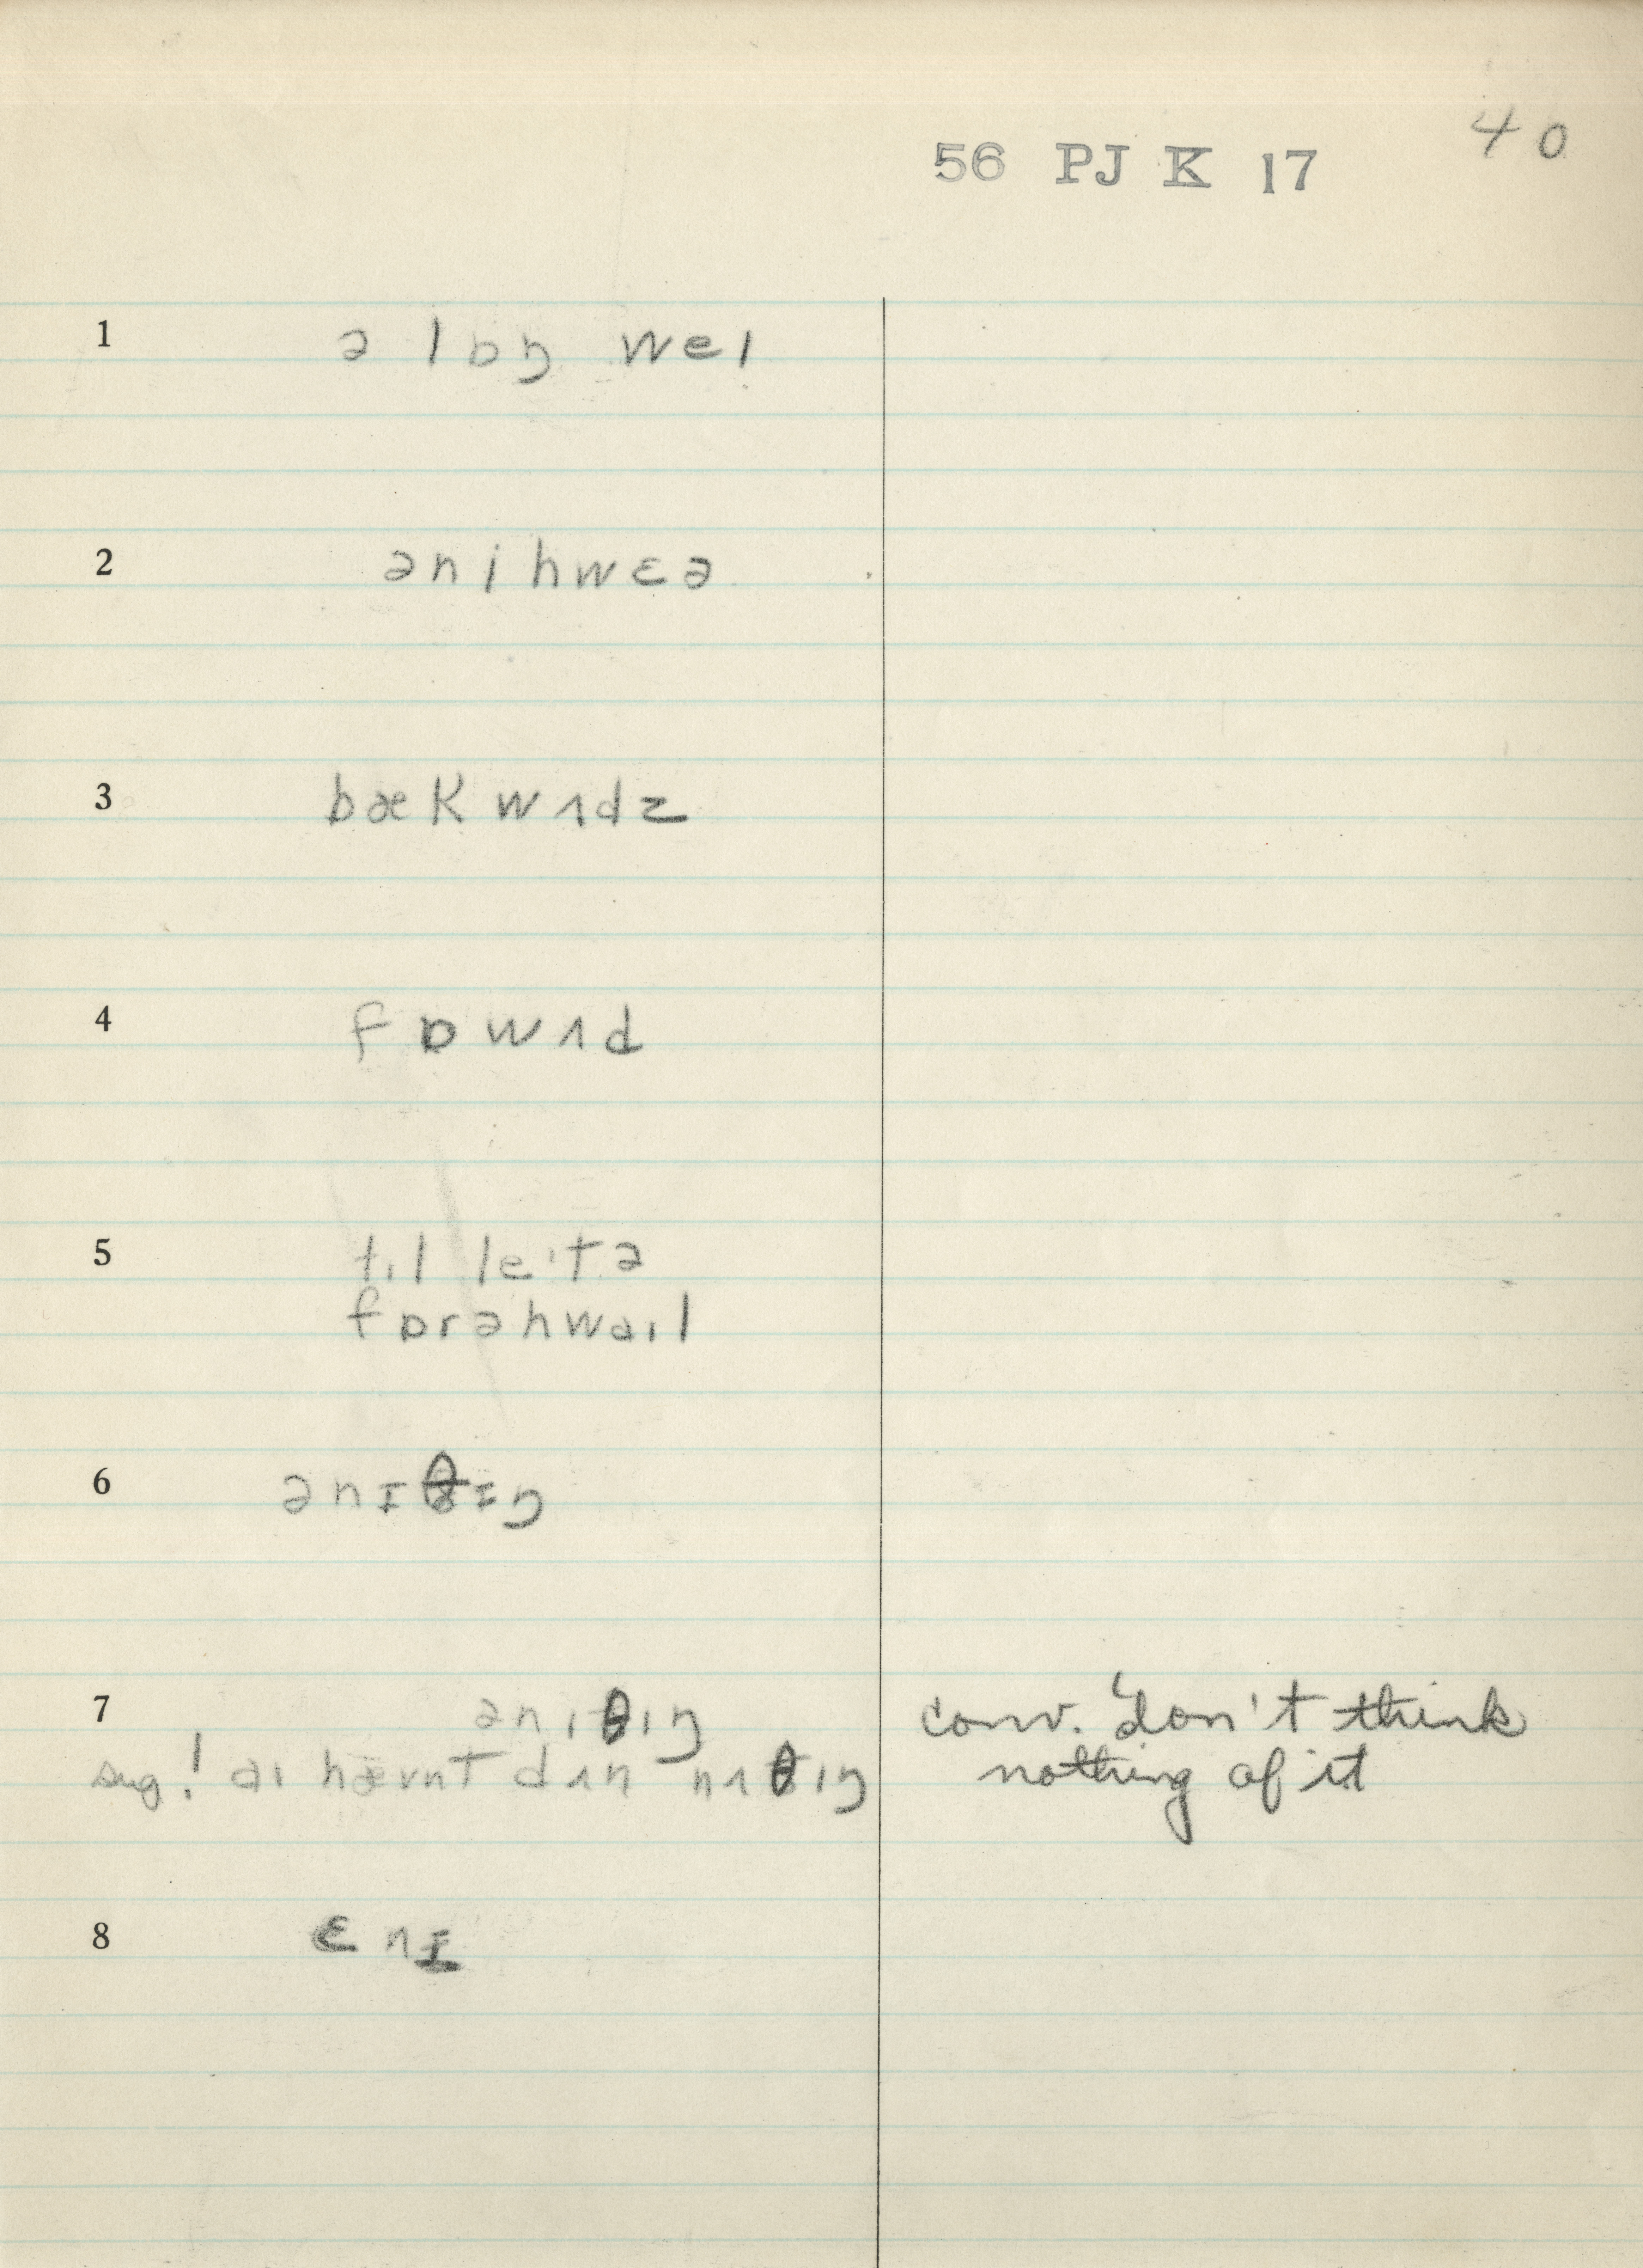 40
56 PJ K 17
1 ə lɒŋ weɪ
2 ənihwɛə
3 bækwʌdz
4 fɒwʌd
5 tɪl leɪtə
fɒrəhwaɪl
6 ənɪθɪŋ
7 ənɪθɪŋ conv. 'don't think
sug! aɪ hævnt dʌn nʌθɪŋ nothing of it
8 ɛnɪ